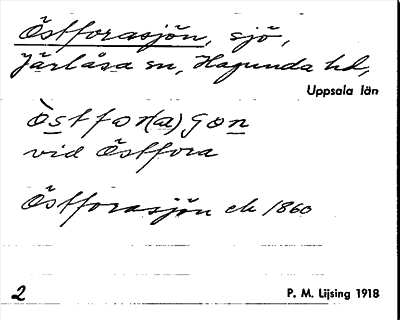 Östforasjön, sjö,
Järlåsa sn, Hagunda hd,
Uppsala län
ò̀stfor(a)ʃön
vid Östfora
Östforasjön ek 1860
2 P. M. Lijsing 1918